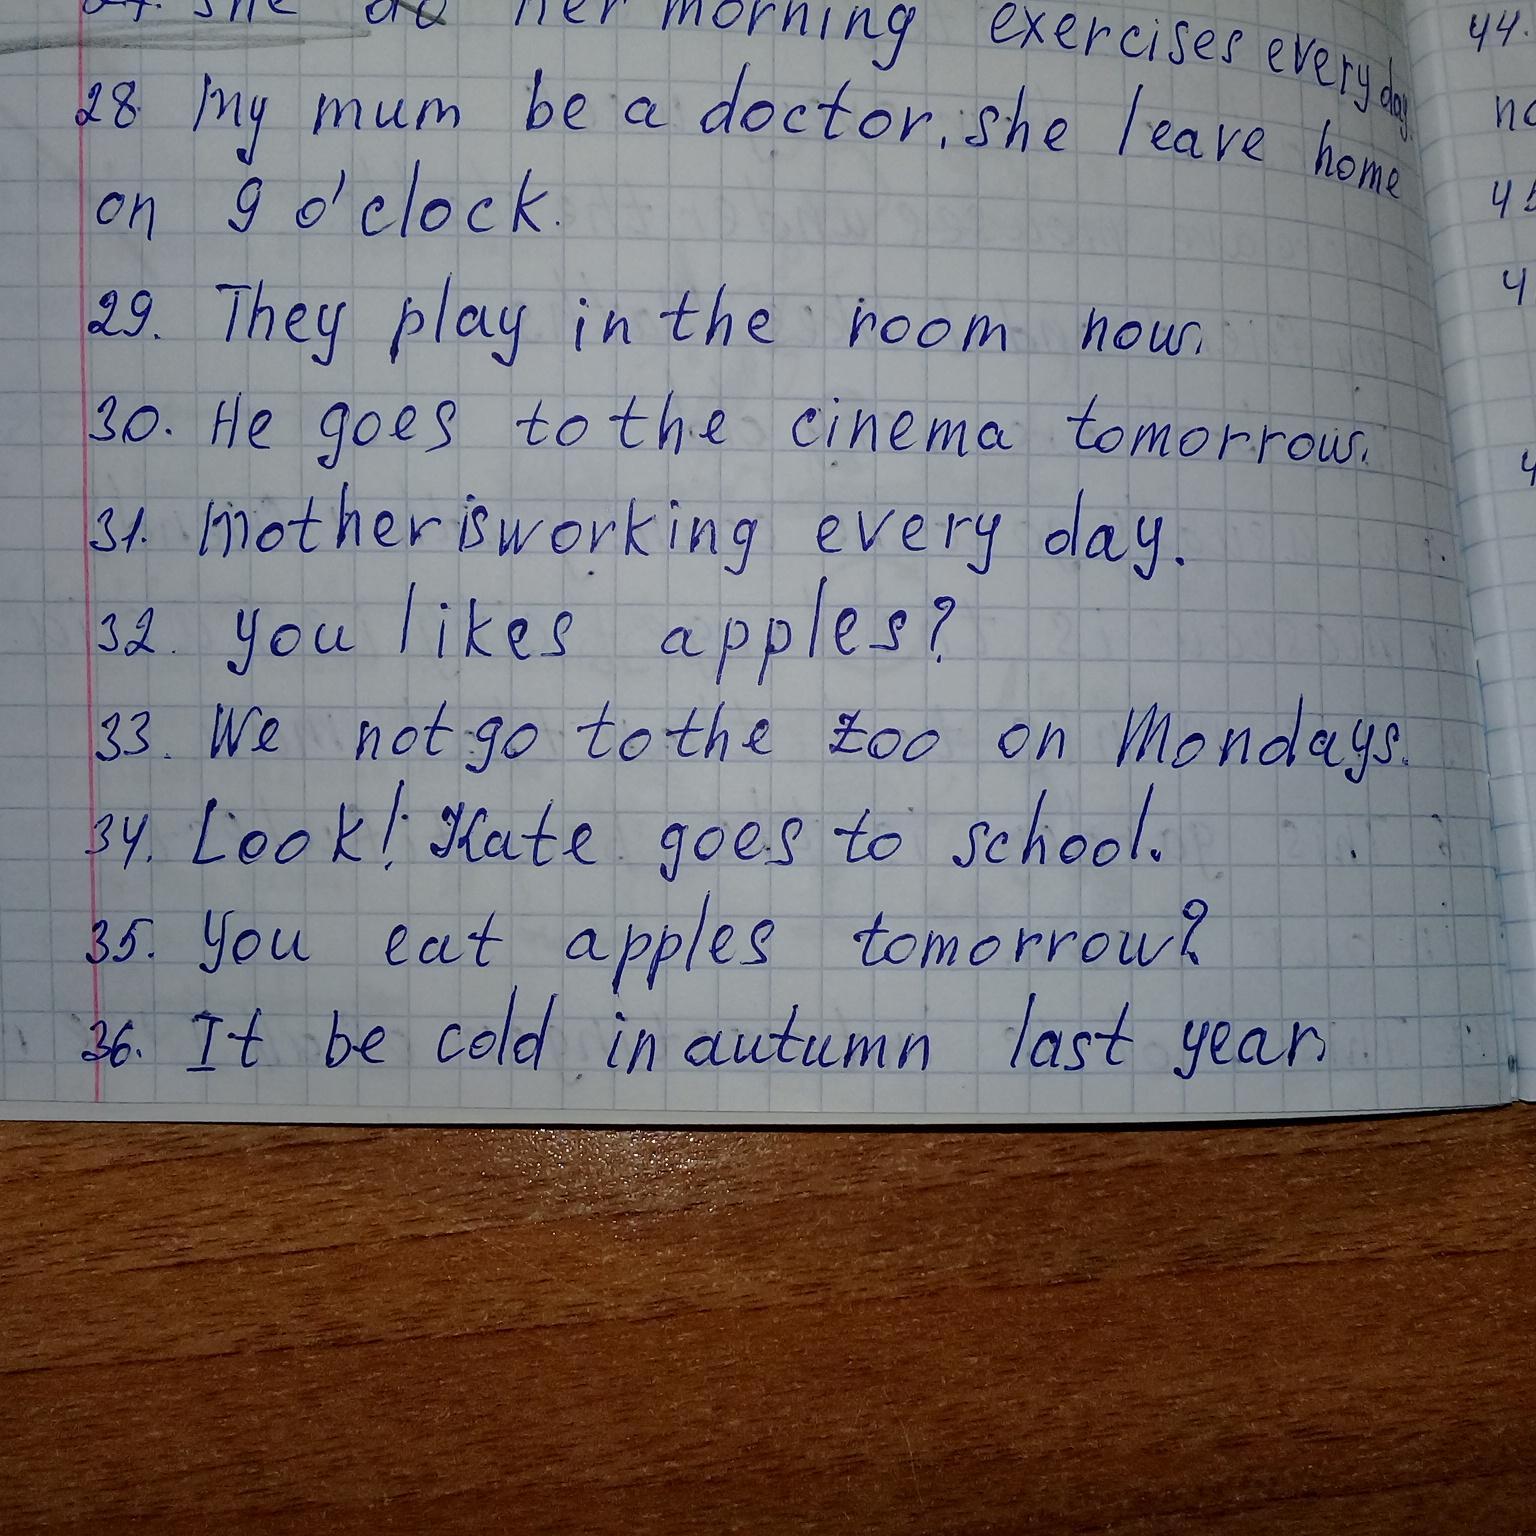 27. She do her morning exercises every day.
28. My mum be a doctor, she leave home
on 9 o'clock.
29. They play in the room now.
30. He goes to the cinema tomorrow.
31. Mother is working every day.
32. You likes apples?
33. We not go to the zoo on Mondays.
34. Look! Kate goes to school.
35. You eat apples tomorrow?
36. It be cold in autumn last year.
44.